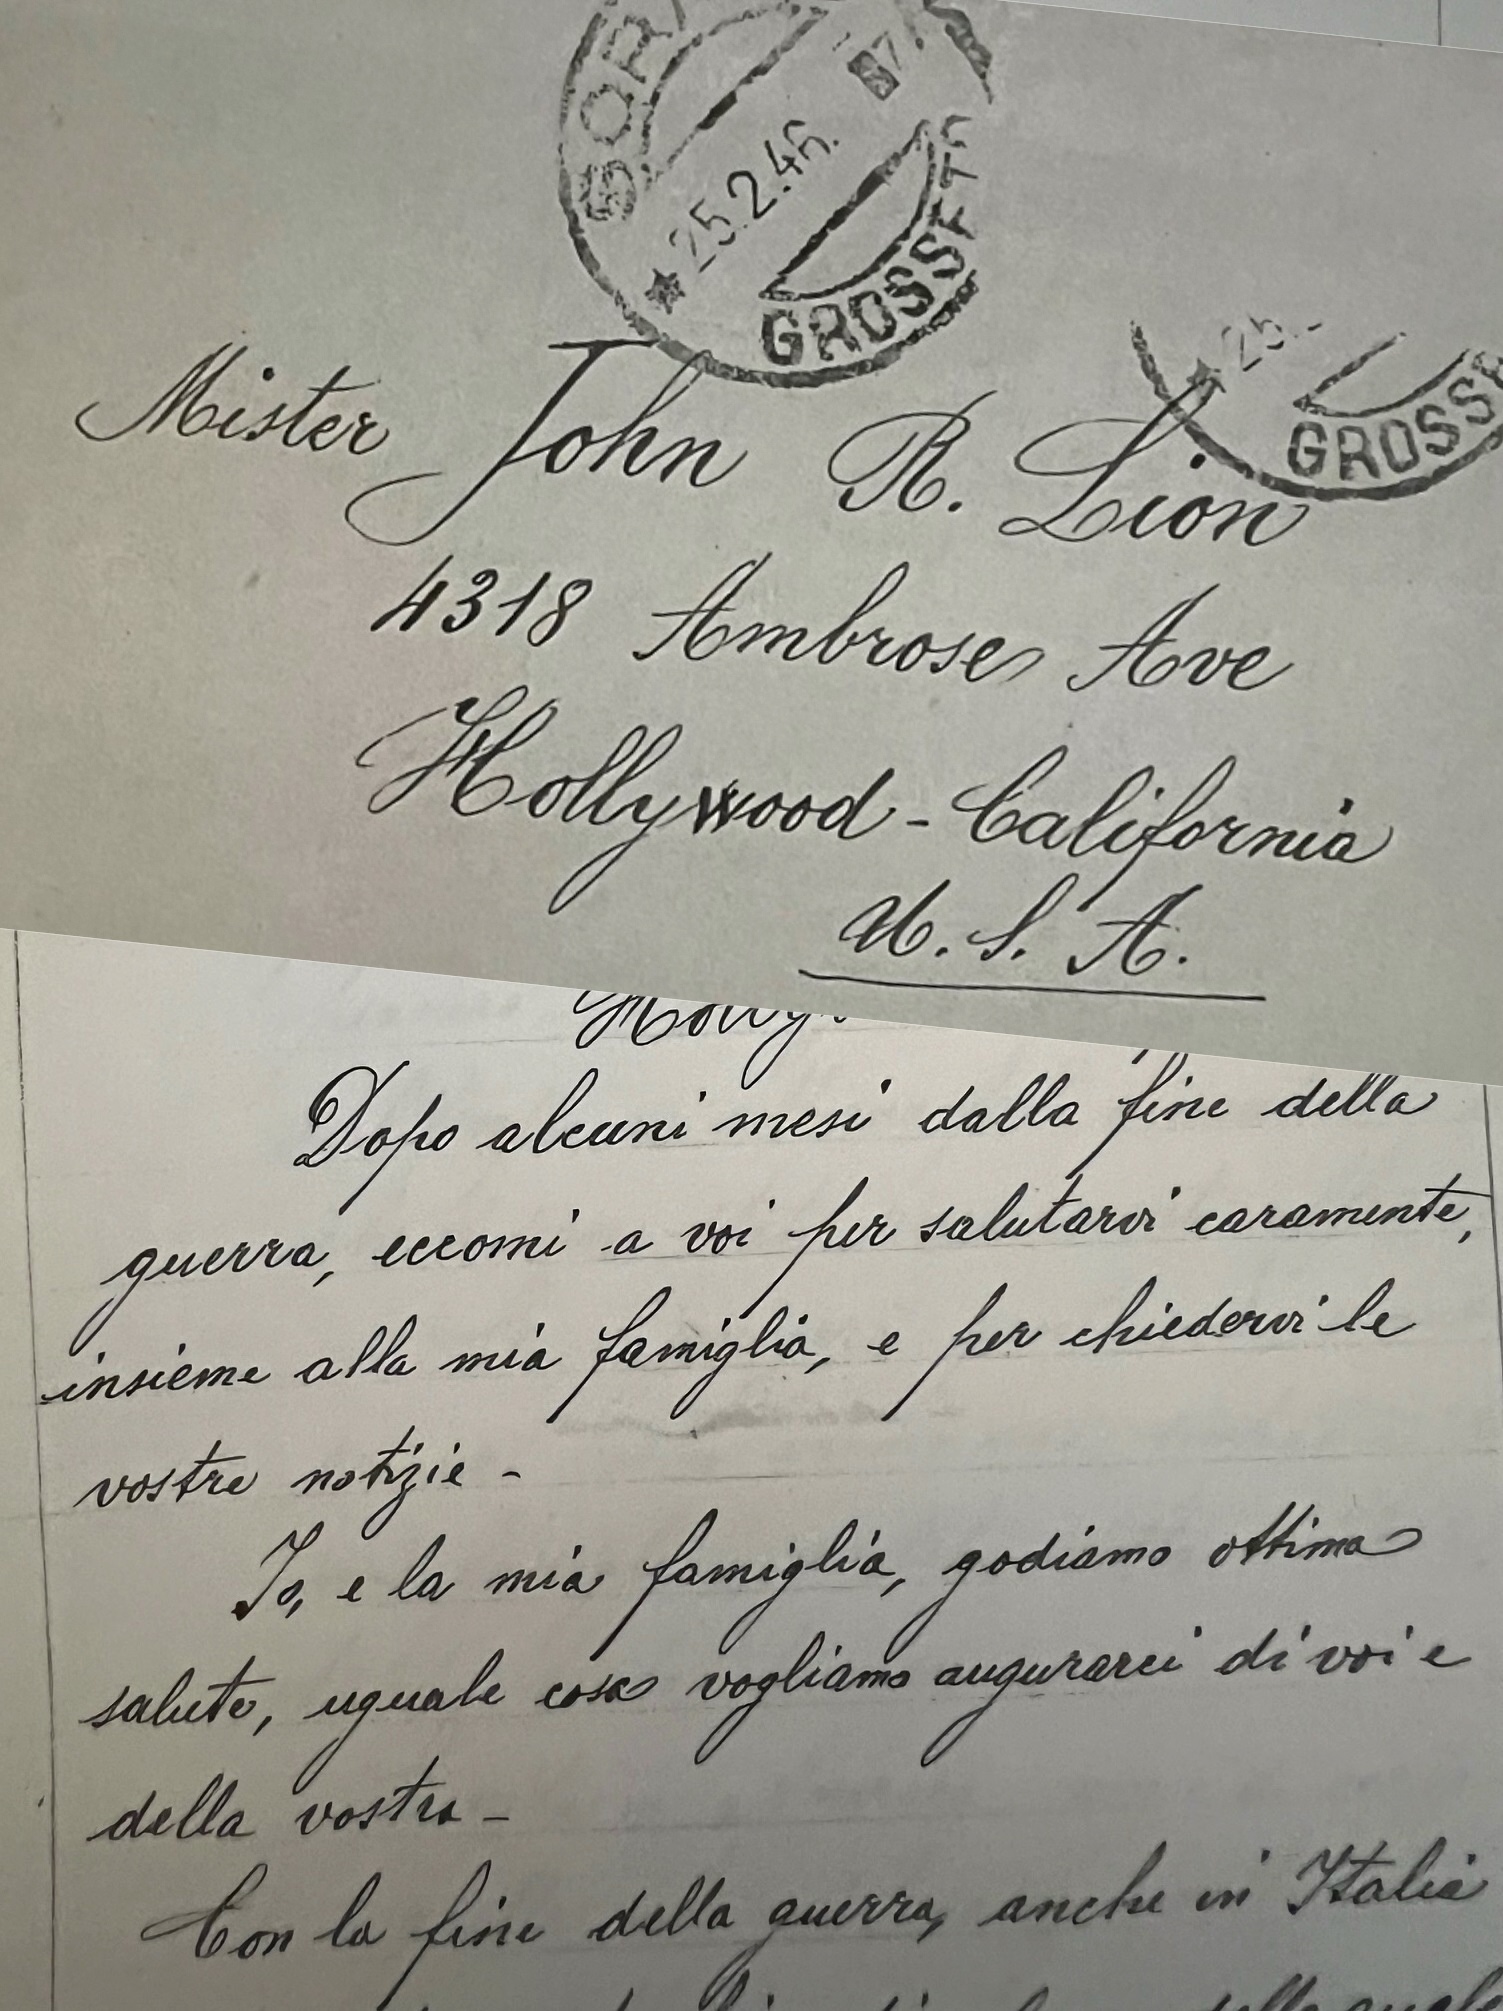 25.2.46.
GROSSETO
Mister John R. Lion
25.
GROSSE
4318 Ambrose Ave
Hollywood - California
U. S. A.
Dopo alcuni mesi dalla fine della
guerra, eccomi a voi per salutarvi caramente,
insieme alla mia famiglia, e per chiedervi le
vostre notizie -
Io, e la mia famiglia, godiamo ottima
salute, uguale cosa vogliamo augurarci di voi e
della vostra -
Con la fine della guerra, anche in Italia